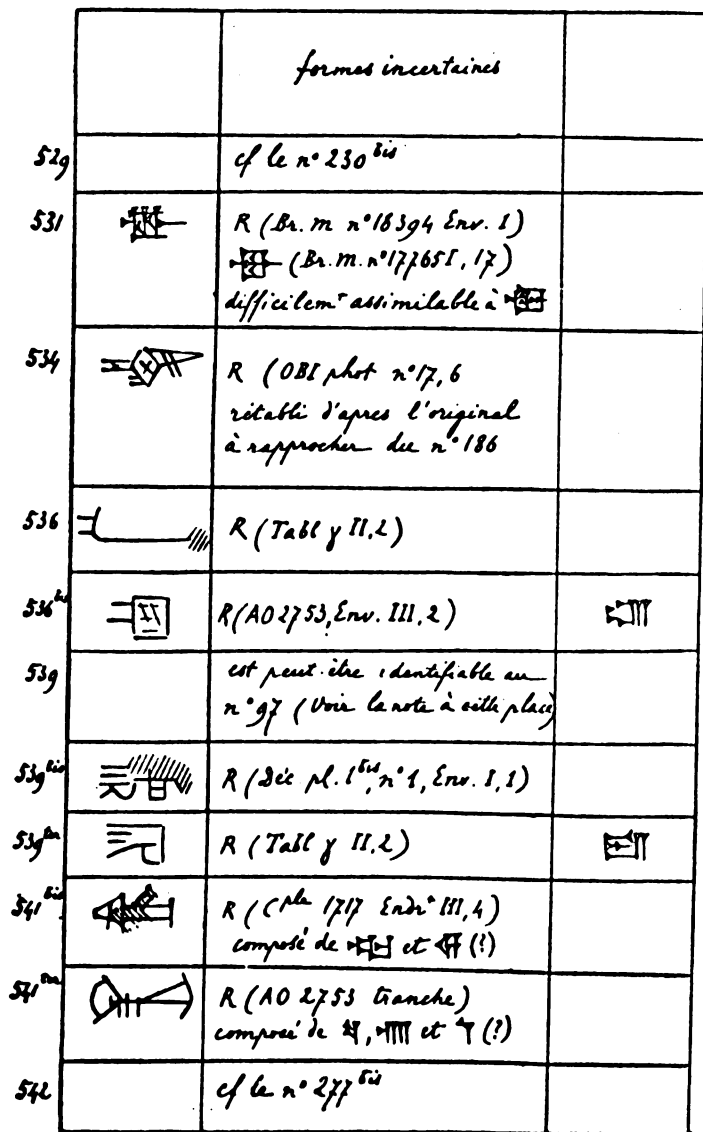 formes incertaines
529 cf le n° 230 bis
531 R (Br. m n° 18394 Env. I)
(Br. m. n° 17765 I, 17)
difficilemt assimilable à
534 R (OBI phot n° 17, 6
rétabli d'apres l'original
à rapprocher du n° 186
536 R (Tabl y II, 2)
536 bis R (AO 2753, Env. III, 2)
539 est peut-être identifiable au
n° 97 (Voir la note à cette place)
539 bis R (Déc pl. 1 bis, n° 1, Env. I, 1)
539 ter R (Tabl y II, 2)
541 bis R (Cple 1717 Endrt III, 4)
composé de et (?)
541 ter R (AO 2753 tranche)
composé de , et (?)
542 cf le n° 277 bis